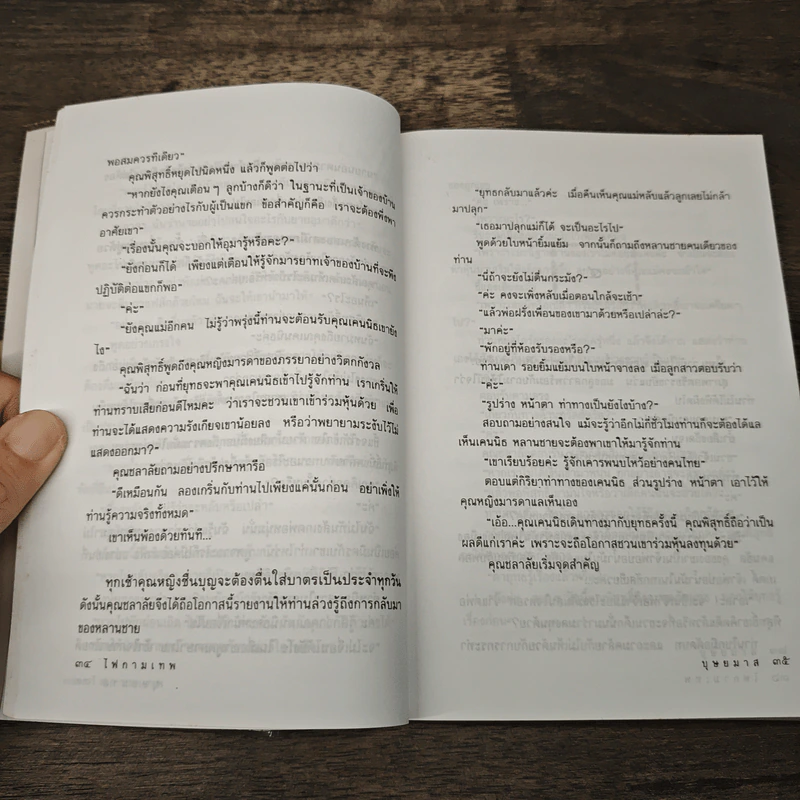 พอสมควรทีเดียว"
คุณพิสุทธิ์หยุดไปนิดหนึ่ง แล้วก็พูดต่อไปว่า
"หากยังไงคุณเตือน ๆ ลูกบ้างก็ดีว่า ในฐานะที่เป็นเจ้าของบ้าน
ควรกระทำตัวอย่างไรกับผู้เป็นแขก ข้อสำคัญก็คือ เราจะต้องพึ่งพา
อาศัยเขา"
"เรื่องนั้นคุณจะบอกให้อุมารู้หรือคะ?"
"ยังก่อนก็ได้ เพียงแต่เตือนให้รู้จักมารยาทเจ้าของบ้านที่จะพึง
ปฏิบัติต่อแขกก็พอ"
"ค่ะ"
"ยังคุณแม่อีกคน ไม่รู้ว่าพรุ่งนี้ท่านจะต้อนรับคุณเคนนิธเขายัง
ไง"
คุณพิสุทธิ์พูดถึงคุณหญิงมารดาของภรรยาอย่างวิตกกังวล
"ฉันว่า ก่อนที่ยุทธจะพาคุณเคนนิธเข้าไปรู้จักท่าน เราเกริ่นให้
ท่านทราบเสียก่อนดีไหมคะ ว่าเราจะชวนเขาเข้าร่วมหุ้นด้วย เผื่อ
ท่านจะได้แสดงความรังเกียจเขาน้อยลง หรือว่าพยายามระงับไว้ไม่
แสดงออกมา?"
คุณชลาลัยถามอย่างปรึกษาหารือ
"ดีเหมือนกัน ลองเกริ่นกับท่านไปเพียงแค่นั้นก่อน อย่าเพิ่งให้
ท่านรู้ความจริงทั้งหมด"
เขาเห็นพ้องด้วยทันที...
ทุกเช้าคุณหญิงชื่นบุญจะต้องตื่นใส่บาตรเป็นประจำทุกวัน
ดังนั้นคุณชลาลัยจึงได้ถือโอกาสนี้รายงานให้ท่านล่วงรู้ถึงการกลับมา
ของหลานชาย
๓๔ ไฟกามเทพ
"ยุทธกลับมาแล้วค่ะ เมื่อคืนเห็นคุณแม่หลับแล้วลูกเลยไม่กล้า
มาปลุก"
"เธอมาปลุกแม่ก็ได้ จะเป็นอะไรไป"
พูดด้วยใบหน้ายิ้มแย้ม จากนั้นก็ถามถึงหลานชายคนเดียวของ
ท่าน
"นี่ถ้าจะยังไม่ตื่นกระมัง?"
"ค่ะ คงจะเพิ่งหลับเมื่อตอนใกล้จะเช้า"
"แล้วพ่อฝรั่งเพื่อนของเขามาด้วยหรือเปล่าล่ะ?"
"มาค่ะ"
"พักอยู่ที่ห้องรับรองหรือ?"
ท่านเดา รอยยิ้มแย้มบนใบหน้าจางลง เมื่อลูกสาวตอบรับว่า
"ค่ะ"
"รูปร่าง หน้าตา ท่าทางเป็นยังไงบ้าง?"
สอบถามอย่างสนใจ แม้จะรู้ว่าอีกไม่กี่ชั่วโมงท่านก็จะต้องได้แล
เห็นเคนนิธ หลานชายจะต้องพาเขาให้มารู้จักท่าน
"เขาเรียบร้อยค่ะ รู้จักเคารพนบไหว้อย่างคนไทย"
ตอบแต่กิริยาท่าทางของเคนนิธ ส่วนรูปร่าง หน้าตา เอาไว้ให้
คุณหญิงมารดาแลเห็นเอง
"เอ้อ...คุณเคนนิธเดินทางมากับยุทธครั้งนี้ คุณพิสุทธิ์ถือว่าเป็น
ผลดีแก่เราค่ะ เพราะจะถือโอกาสชวนเขาร่วมหุ้นลงทุนด้วย"
คุณชลาลัยเริ่มจุดสำคัญ
บุษยมาส ๓๕